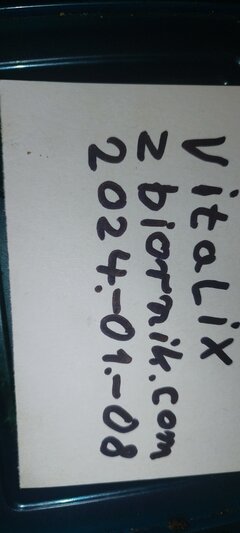 Vitalix
zbiornik.com
2024.-01.-08